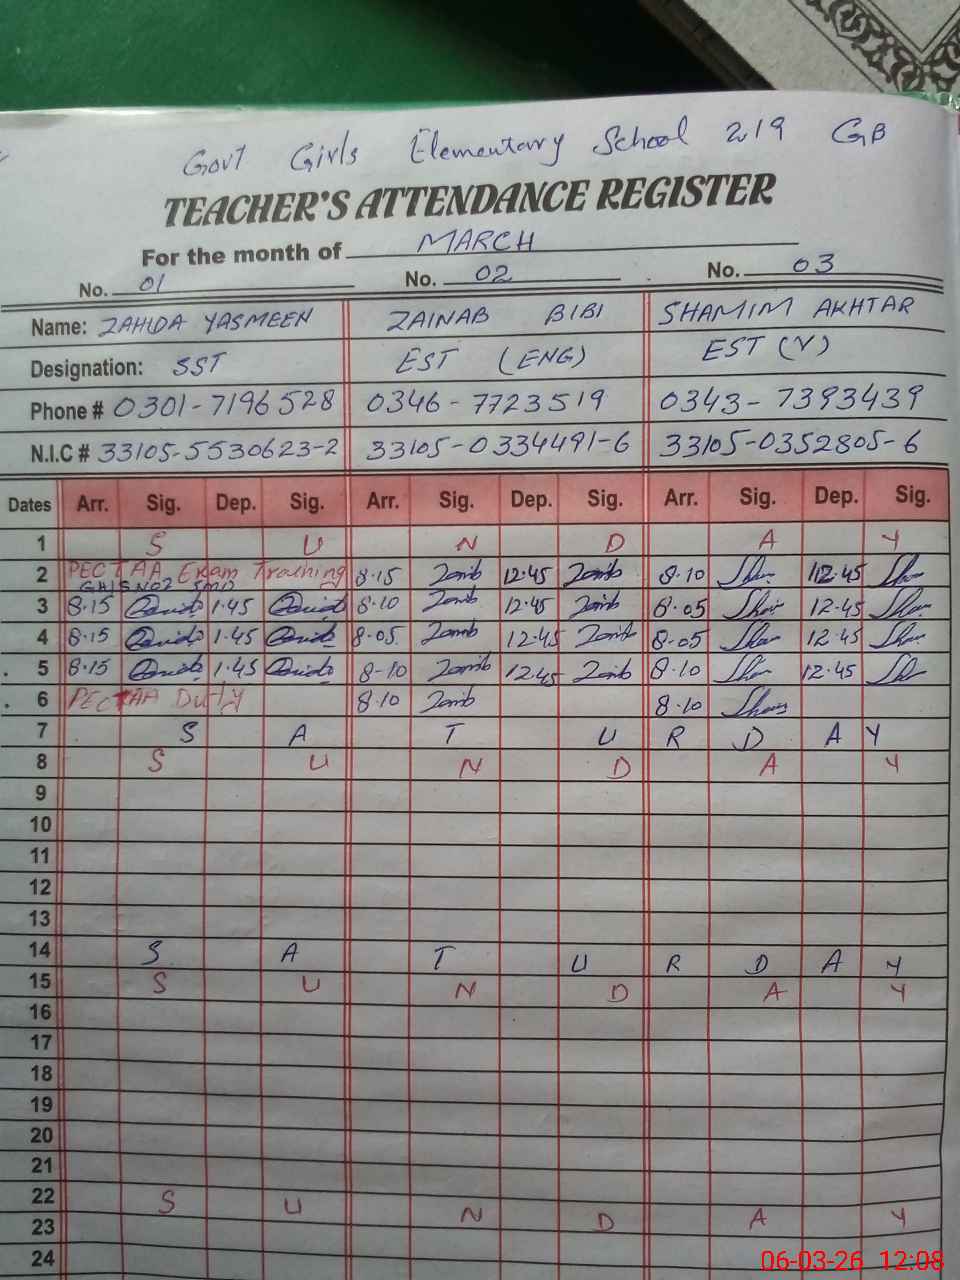 Govt Girls Elementary School 219 GB
TEACHER'S ATTENDANCE REGISTER
For the month of MARCH
No. 01 No. 02 No. 03
Name: ZAHIDA YASMEEN ZAINAB BIBI SHAMIM AKHTAR
Designation: SST EST (ENG) EST (V)
Phone # 0301-7196528 0346-7723519 0343-7393439
N.I.C # 33105-5530623-2 33105-0334491-6 33105-0352805-6
Dates Arr. Sig. Dep. Sig. Arr. Sig. Dep. Sig. Arr. Sig. Dep. Sig.
1 S U N D A Y
2 PECTAA Exam Training 8.15 Zainb 12.45 Zainb 8.10 Sham 12.45 Sham
3 8.15 1.45 8.10 Zainb 12.45 Zainb 8.05 Sham 12.45 Sham
4 8.15 1.45 8.05 Zainb 12.45 Zainb 8.05 Sham 12.45 Sham
5 8.15 1.45 8-10 Zainb 12.45 Zainb 8.10 Sham 12.45 Sh
6 PECTAA Duty 8.10 Zainb 8.10 Sham
7 S A T U R D A Y
8 S U N D A Y
9
10
11
12
13
14 S A T U R D A Y
15 S U N D A Y
16
17
18
19
20
21
22 S U N D A Y
23
24
06-03-26 12:08